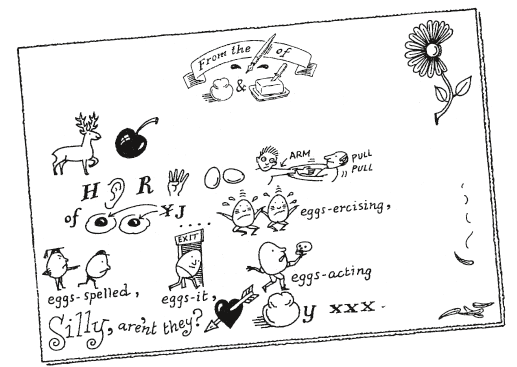 From the of
&
ARM PULL
PULL
H R
of YJ eggs-ercising,
....
EXIT
eggs-acting
eggs-spelled, eggs-it,
Silly, aren't they? y xxx.